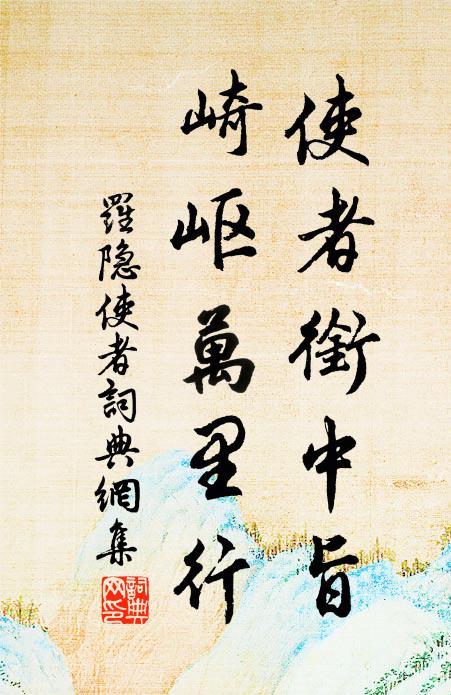 使者銜中旨
崎岖萬里行
羅隐使者詞典網集
詞典網印